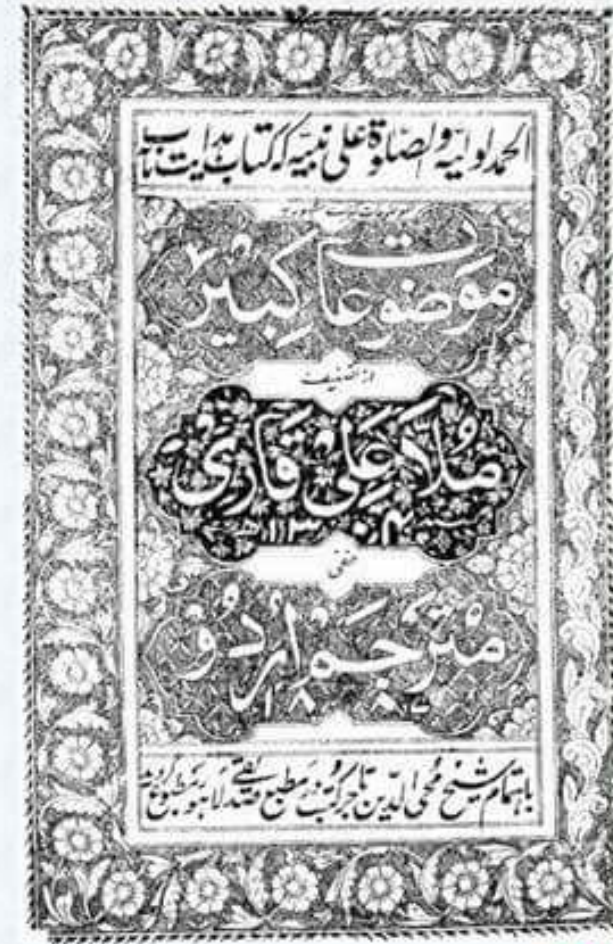 الحمد لولیہ والصلوٰۃ علی نبیہ کہ کتاب ہدایت مآب
موضوعات کبیر
از تصنیف
ملا علی قاری
حنفی
مترجم اردو
۱۸۸۷
باہتمام شیخ محی الدین تاجر کتب در مطبع لاہور مطبوع گردید